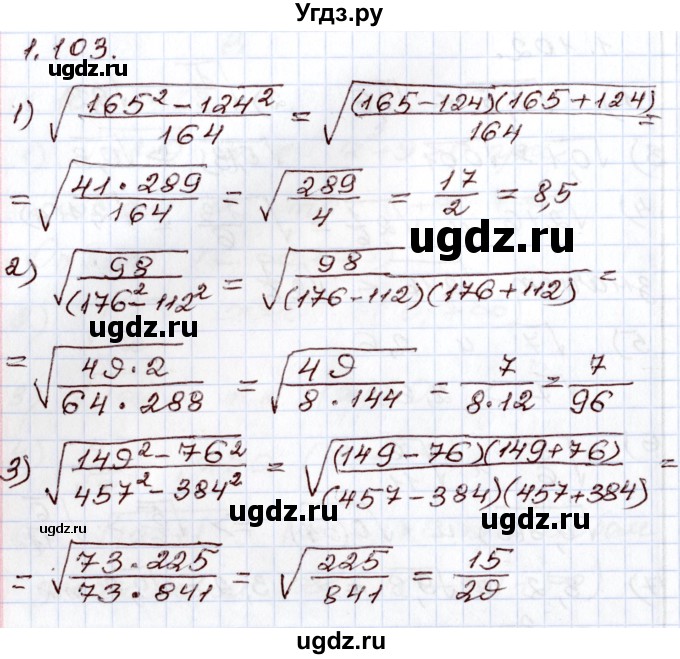 Угдз.ру
1.103.
ugdz.ru
1) √(165² − 124² / 164) = √((165−124)(165+124) / 164) =
= √(41·289 / 164) = √(289 / 4) = 17/2 = 8,5
ugdz.ru
2) √(98 / (176² − 112²) = √(98 / (176−112)(176+112)) =
ugdz.ru
= √(49·2 / 64·288) = √(49 / 8·144) = 7 / 8·12 = 7/96
3) √(149² − 76² / 457² − 384²) = √((149−76)(149+76) / (457−384)(457+384)) =
ugdz.ru
ugdz.ru
= √(73·225 / 73·841) = √(225 / 841) = 15/29
ugdz.ru
ugdz.ru